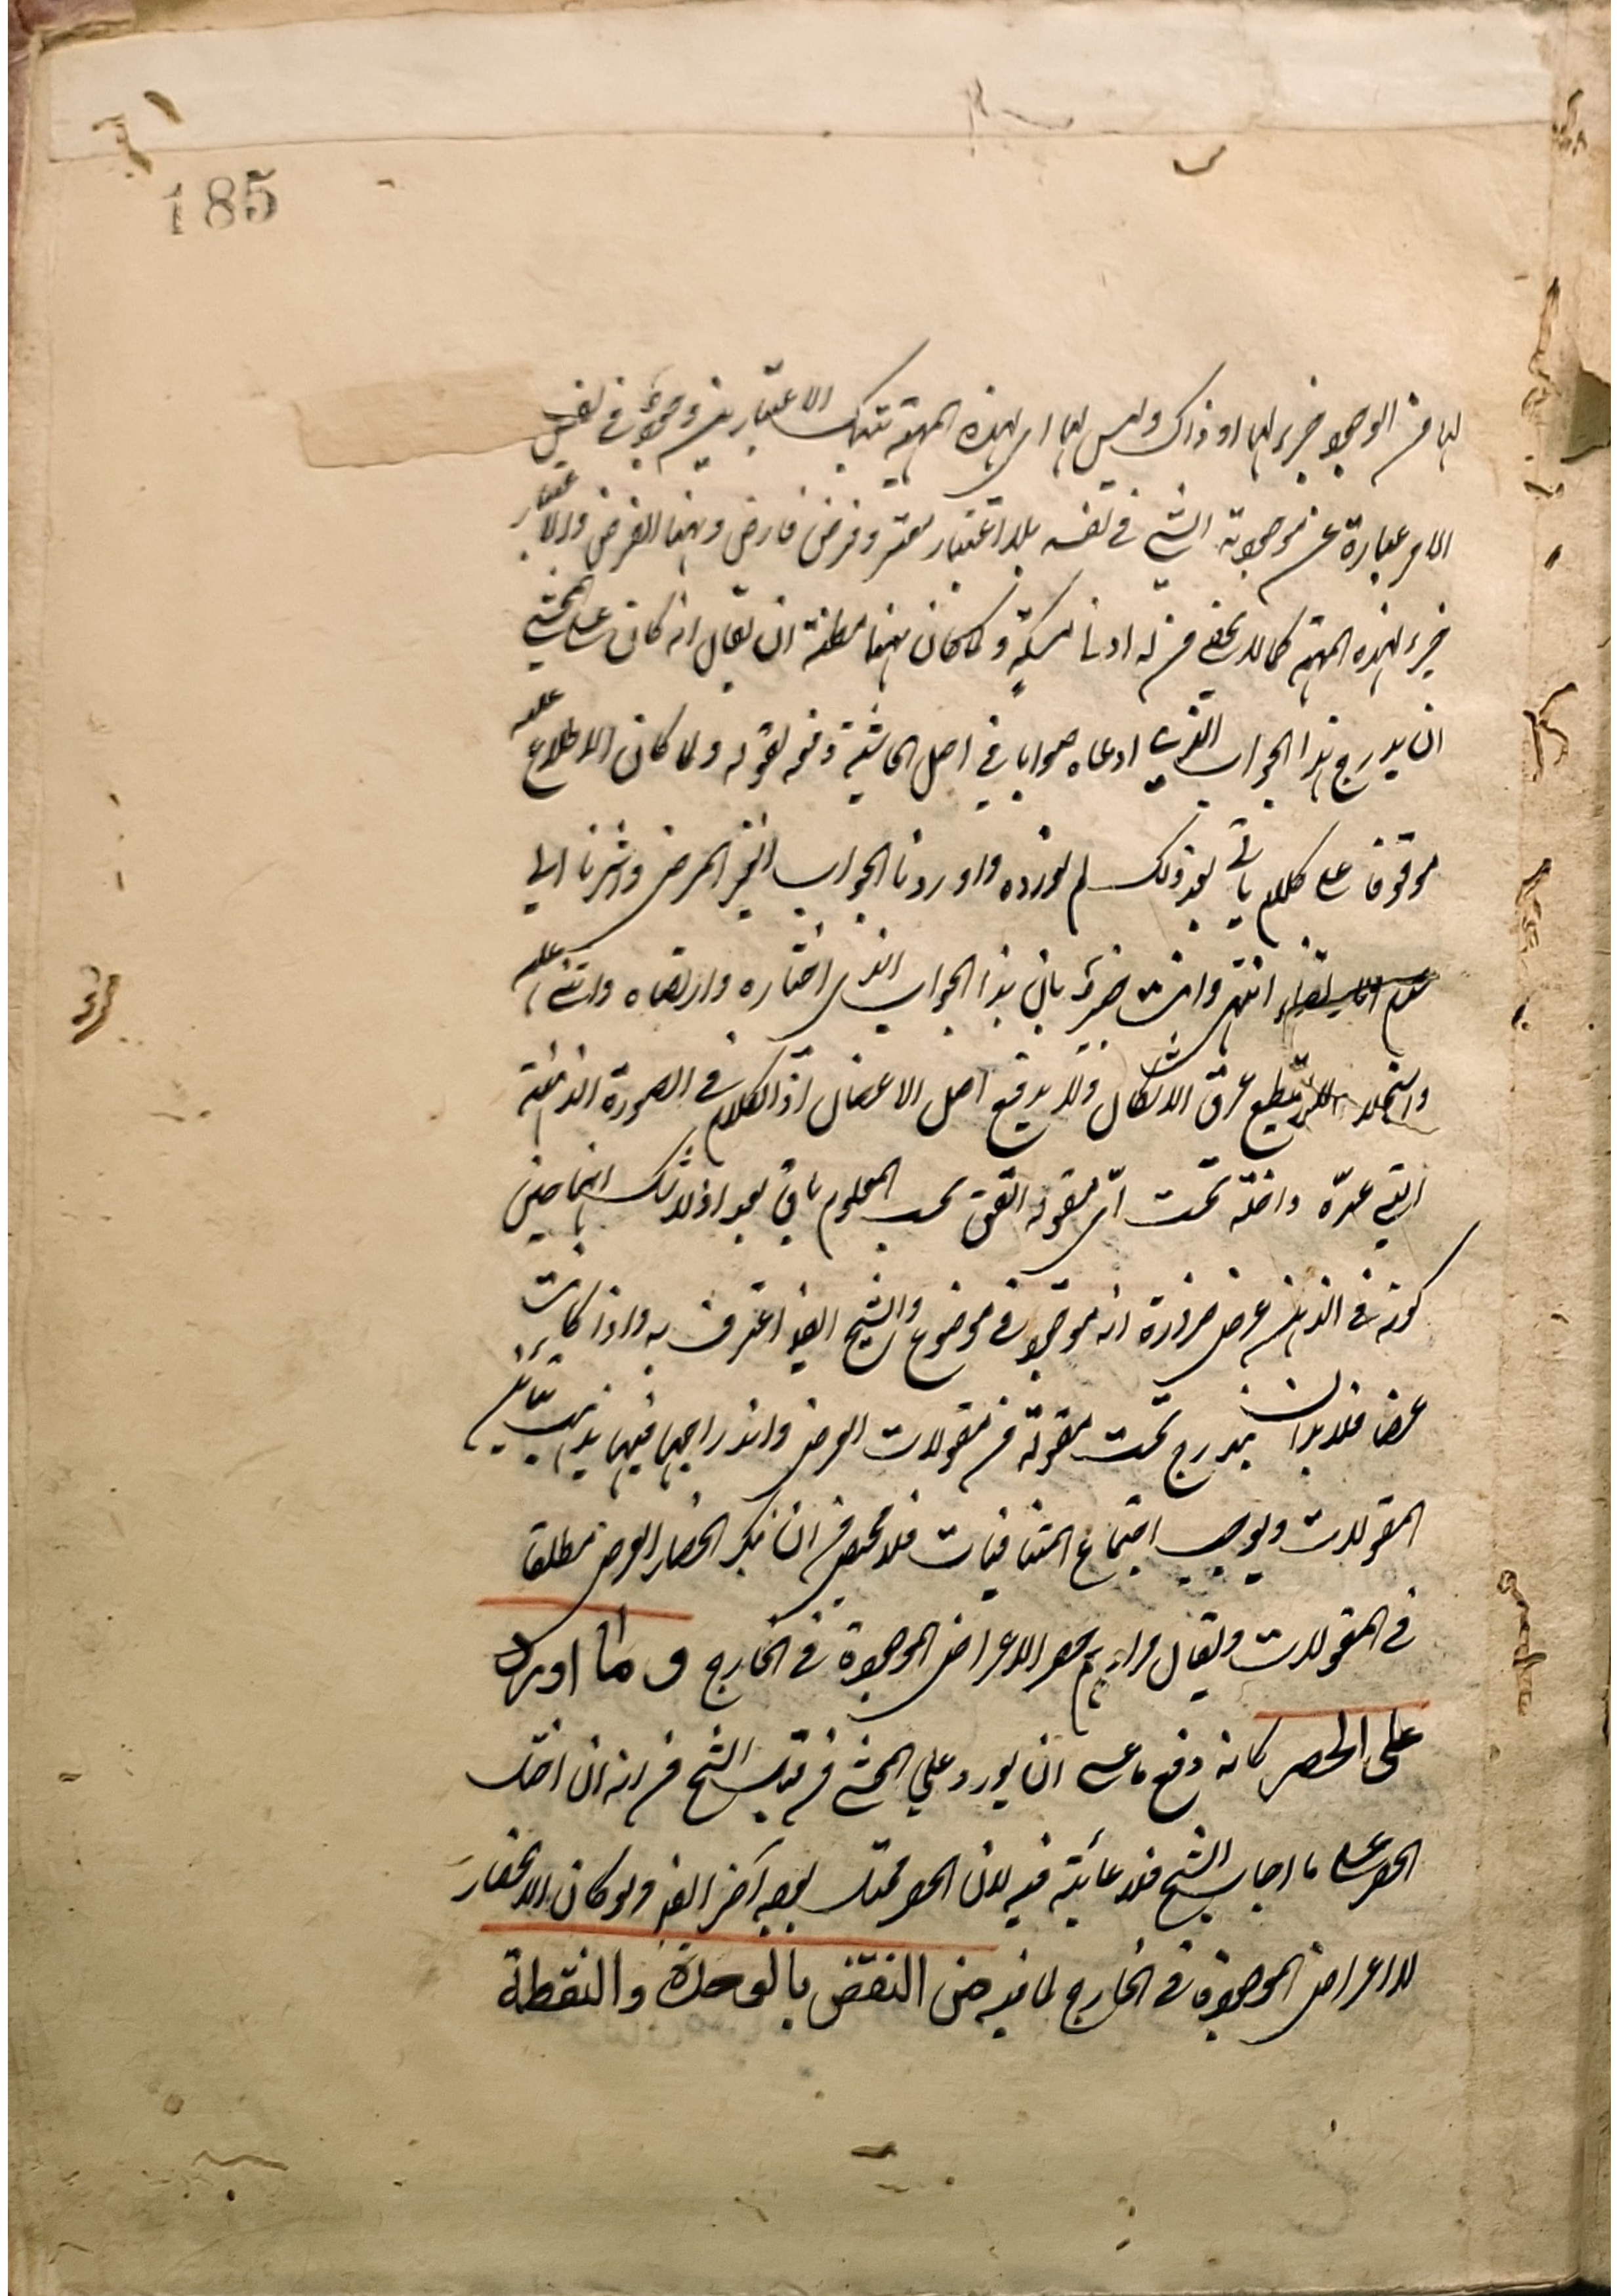 185
لها من الوجود خير لها او ذاك وليس لها اى لهذه المهية بتلك الاعتبارين وجود فى نفس
الامر عبارة عن موجودية الشئ فى نفسه بلا اعتبار معتبر وفرض فارض وههنا الفرض والاعتبار
لهذه المهية كما لا يخفى من له ادنى مسكة ولما كان ههنا مظنة ان يقال انه كان على المحشى
ان يدرج هذا الجواب الذى ادعاه صوابا فى اصل الحاشية دفعه بقوله ولما كان الاطلاع عليه
موقوفا على كلام ياتى بعد ذلك لم نورده واوردنا الجواب الغير المرضى واشرنا الى
انتهى وانت خبير بان هذا الجواب الذى اختاره وارتضاه واثنى عليه
لا يقطع عرق الاشكال ولا يدفع اصل الاعضال اذ الكلام فى الصورة الذهنية
التى عدّه داخلة تحت اىّ مقولة اتفق بحسب المعلوم باق بعد اذ لا شك انها حين
كونه فى الذهن عرض ضرورة انه موجود فى موضوع والشيخ ايضا اعترف به واذا كانت
عرضا فلا بد ان يندرج تحت مقولة من مقولات العرض واندراجها فيها يذهب تباين
المقولات ويوجب اجتماع المتنافيات فلا محيص من ان ينكر انحصار العرض مطلقا
فى المقولات ويقال مرادهم حصر الاعراض الموجودة فى الخارج وما اورد
على الحصر كانه دفع ما عسى ان يورد على المحشى من قبل الشيخ من انه ان اختل
الحصر على ما اجاب الشيخ فلا عائبة فيه لان الحصر مختل بوجه آخر ايضا ولو كان الانحصار
للاعراض الموجودة فى الخارج لما فيه من النقض بالوحدة والنقطة